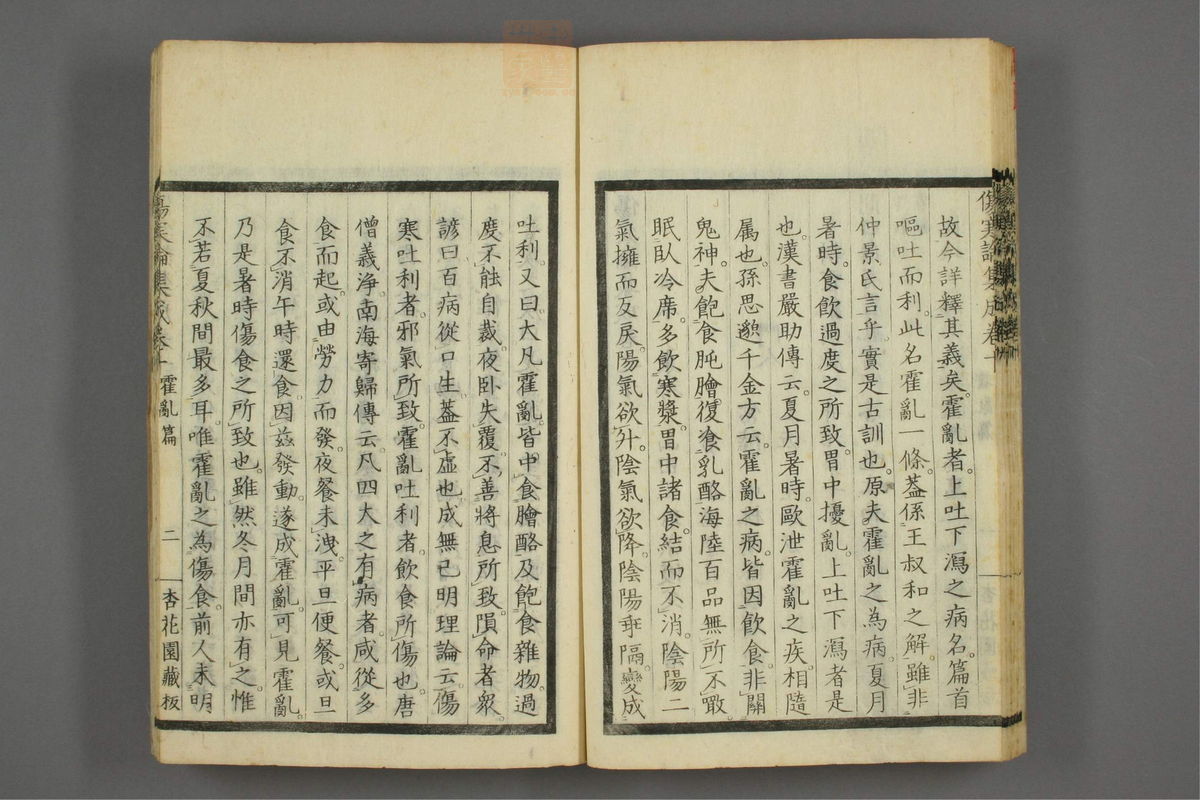 傷寒論集成卷十
故今詳釋其義矣。霍亂者。上吐下瀉之病名。篇首
嘔吐而利。此名霍亂一條。葢係王叔和之解。雖非
仲景氏言乎。實是古訓也。原夫霍亂之為病。夏月
暑時。食飲過度之所致。胃中擾亂。上吐下瀉者是
也。漢書嚴助傳云。夏月暑時。歐泄霍亂之疾相隨
属也。孫思邈千金方云。霍亂之病。皆因飲食。非關
鬼神。夫飽食肫膾。復飡乳酪。海陸百品。無所不噉。
眠臥冷席。多飲寒漿。胃中諸食。結而不消。陰陽二
氣。擁而反戾。陽氣欲升。陰氣欲降。陰陽乖隔。變成
吐利。又曰。大凡霍亂。皆中食膾酪及飽食雜物。過
度不能自裁。夜卧失覆。不善將息所致。隕命者眾。
諺曰百病從口生。葢不虛也。成無己明理論云。傷
寒吐利者。邪氣所致。霍亂吐利者。飲食所傷也。唐
僧義净。南海寄歸傳云。凡四大之有病者。咸從多
食而起。或由勞力而發。夜餐未洩。平旦便餐。或旦
食不消。午時還食。因茲發動。遂成霍亂。可見霍亂
乃是暑時傷食之所致也。雖然冬月間亦有之。惟
不若夏秋間最多耳。唯霍亂之為傷食。前人未明
傷寒論集成卷十 霍亂篇 二 杏花園藏板